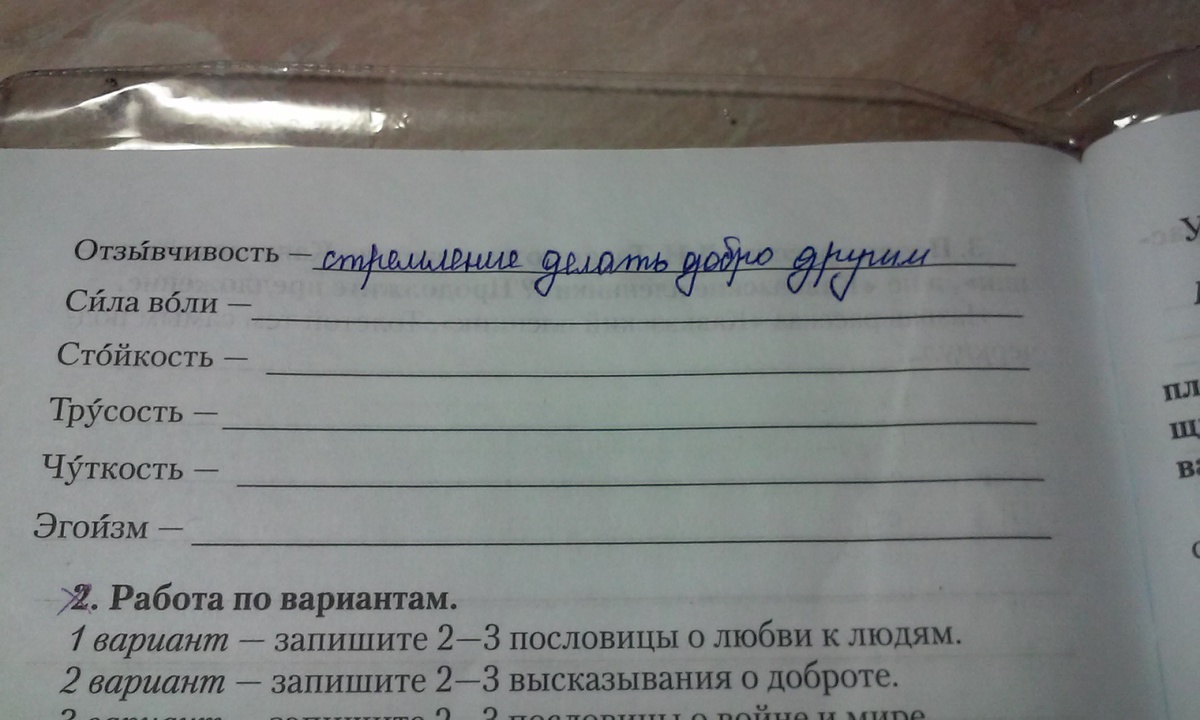 Отзы́вчивость — стремление делать добро другим
Си́ла во́ли —
Сто́йкость —
Тру́сость —
Чу́ткость —
Эгои́зм —
2. Работа по вариантам.
1 вариант — запишите 2—3 пословицы о любви к людям.
2 вариант — запишите 2—3 высказывания о доброте.
3 вариант — запишите 2—3 пословицы о войне и мире.